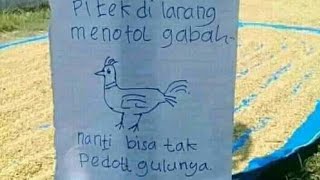 Pitek di larang
menotol gabah
nanti bisa tak
Pedott gulunya.